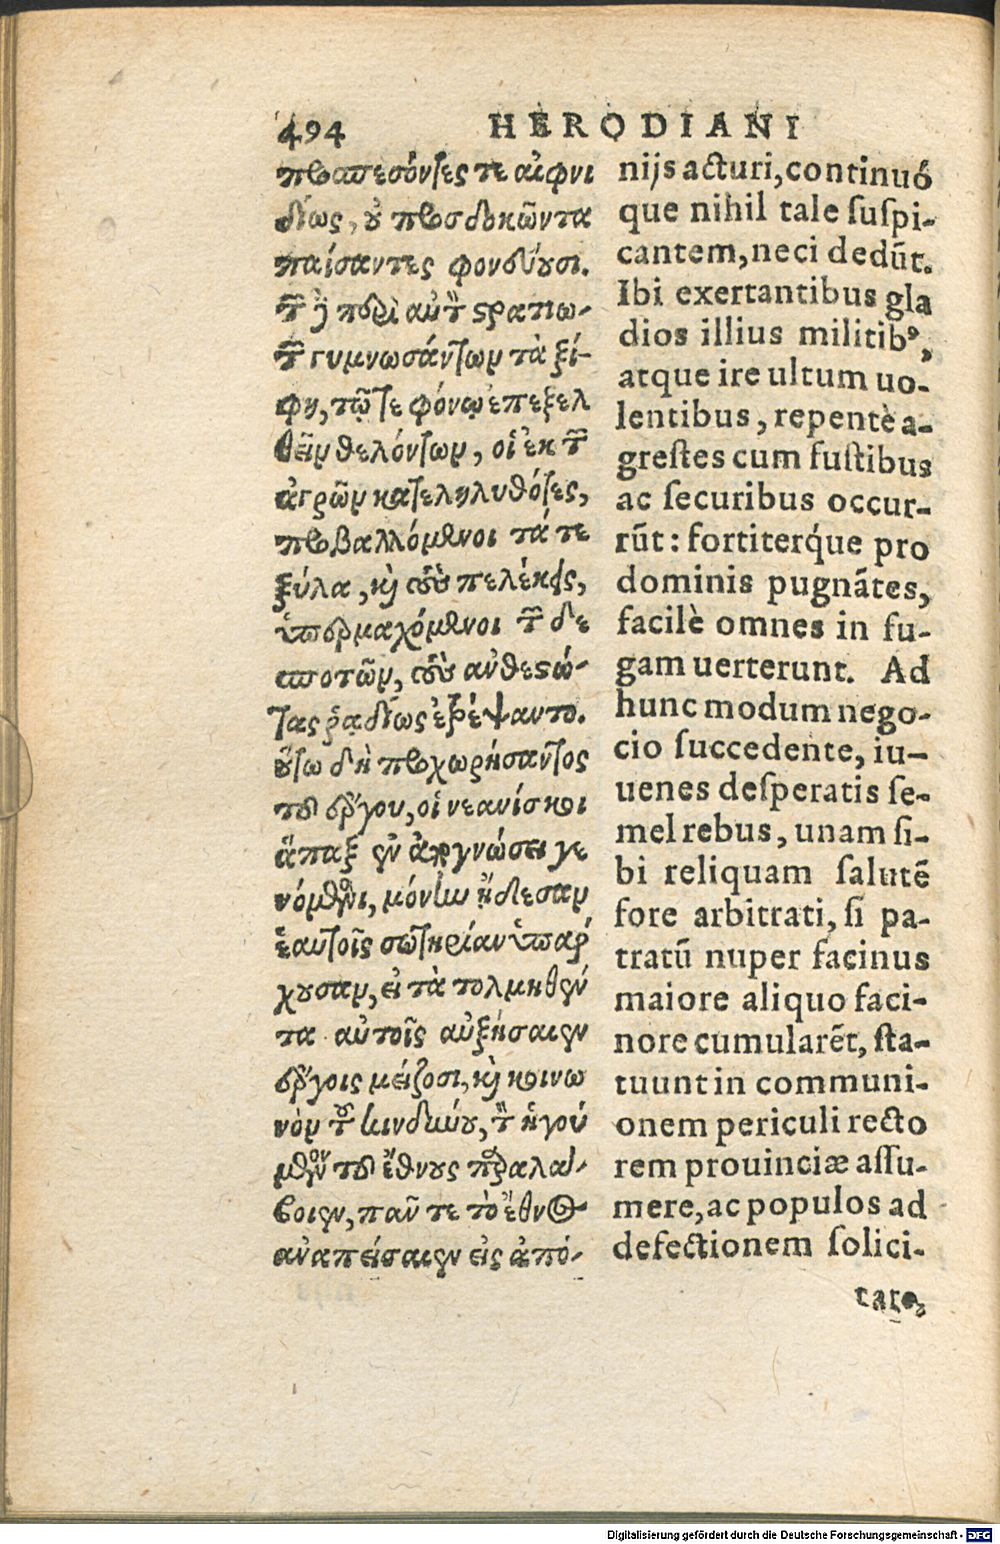 494 HERODIANI
προσπεσόντες τε αἰφνι
δίως, οὐ προσδοκῶντα
παίσαντες φονεύουσι.
τῶν δὲ περὶ αὐτὸν στρατιω-
τῶν γυμνωσάντων τὰ ξί-
φη, τῷ τε φόνῳ ἐπεξελ
θεῖν θελόντων, οἱ ἐκ τῶν
ἀγρῶν κατεληλυθότες,
προβαλλόμενοι τά τε
ξύλα, καὶ τοὺς πελέκεις,
ὑπερμαχόμενοι τῶν δε
σποτῶν, τοὺς ἀνθεστώ-
τας ῥᾳδίως ἐτρέψαντο.
οὕτω δὴ προχωρήσαντος
τοῦ ἔργου, οἱ νεανίσκοι
ἅπαξ ἐν ἀπογνώσει γε
νόμενοι, μόνην ᾔδεσαν
ἑαυτοῖς σωτηρίαν ὑπάρ
χουσαν, εἰ τὰ τολμηθέν
τα αὐτοῖς αὐξήσαιεν
ἔργοις μείζοσι, καὶ κοινω
νὸν τοῦ κινδύνου, τὸν ἡγού
μενον τοῦ ἔθνους παραλά-
βοιεν, πᾶν τε τὸ ἔθνος
ἀναπείσαιεν εἰς ἀπό-
nijs acturi, continuó
que nihil tale suspi-
cantem, neci dedūt.
Ibi exertantibus gla
dios illius militibꝰ,
atque ire ultum uo-
lentibus, repentè a-
grestes cum fustibus
ac securibus occur-
rūt: fortiterq́ue pro
dominis pugnātes,
facilè omnes in fu-
gam uerterunt. Ad
hunc modum nego-
cio succedente, iu-
uenes desperatis se-
mel rebus, unam si-
bi reliquam salutē
fore arbitrati, si pa-
tratū nuper facinus
maiore aliquo faci-
nore cumularēt, sta-
tuunt in communi-
onem periculi recto
rem prouinciæ assu-
mere, ac populos ad
defectionem solici-
tare,
Digitalisierung gefördert durch die Deutsche Forschungsgemeinschaft - DFG